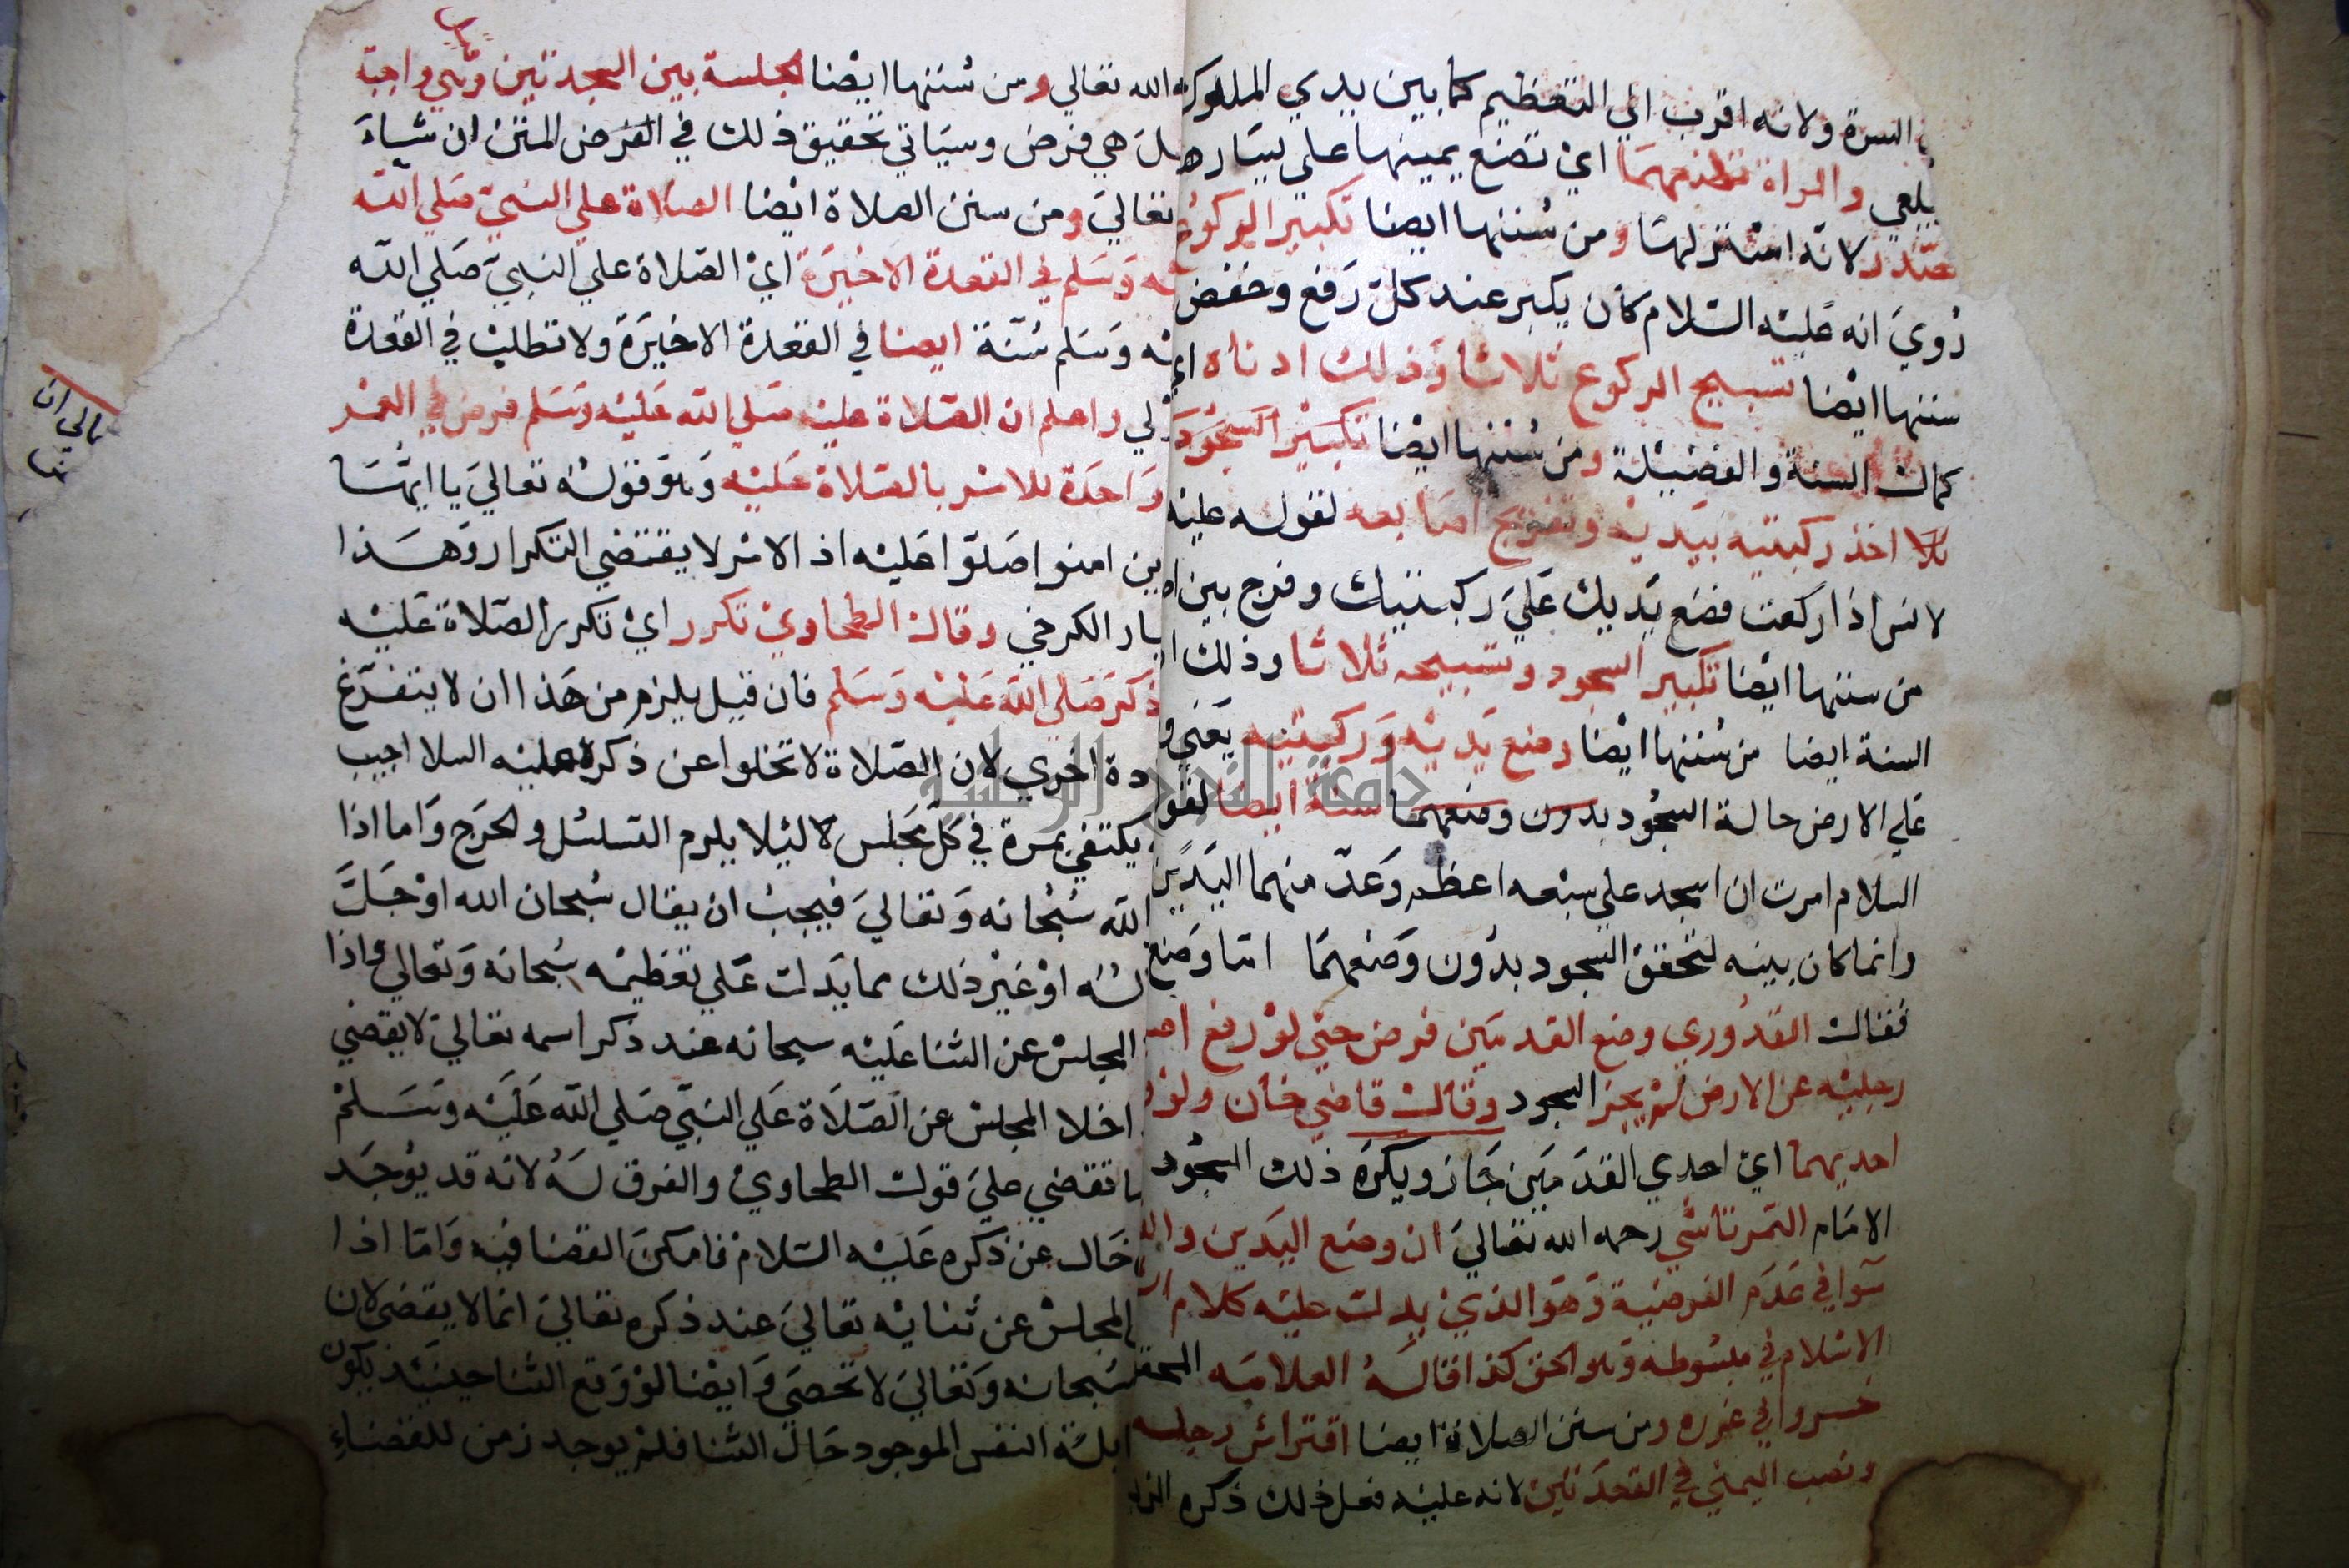 السرة ولانه اقرب الي التعظيم كما بين يدي الملوك
والمراة تضعهما اي تضع يمينها علي يسارها
لانه استر لها ومن سننها ايضا تكبير الركوع
رُويَ انه عليْه السّلام كان يكبر عند كلّ رَفع وخفض
سننها ايضا تسبيح الركوع ثلاثا وَذلك ادناه اي
كمال السنة والفضيلة ومن سُننها ايضا تكبير السجود
اخذ ركبتيه بيَديْه وتفريج اصابعه لقوله عليْه
لانس اذا ركعت فضع يَديك عَليَ ركبتيك وفرج بين
من سننها ايضا تكبير السجود وتسبيحه ثلاثا وذلك
السنة ايضا من سُننها ايضا وضع يَديْه وَركبتيْه يَعني
عَلي الارض حالة السجُود بدون وضعهما سنة ايضا لقو
السلام امرت ان اسجد علي سبْعه اعظم وَعدّ منهما اليَدَين
وانما كان بينه لتحقق السجود بدُون وَضعهمَا امّا وَضع
فقال القدُوري وضع القدمَين فرض حتي لوْ رفع
رجليْه عن الارض لمْ يجز السجود وقال قاضي خان ولوْ
احديهما ايْ احدي القدَمَين جَاز ويكرَه ذلك السجُود
الامَام التمرتاشي رحمه الله تعاليَ ان وضع اليَدَين
سَوا في عَدَم الفرضية وَهوَ الذيْ يدل عليْه كلام
الاسْلام في مبسُوطه وَهو الحق كذا قالهُ العلامَه المحقق
خسروا في غرره ومن سنن الصلاة ايضا افتراش رجله
ونصب اليمني في القعدَتيْن لانه عليْه فعل ذلك ذكره
الله تعالي ومن سُننها ايضا الجلسة بين السجدتين وهي واجبة
هي فرض وسيَاتي تحقيق ذلك في الفرض المتن ان شاءَ
تعاليَ ومن سنن الصلاة ايضا الصلاة علي النبيّ صَلي الله
وَسَلم في القعدة الاخيرَة ايْ الصّلاة علي النبيّ صَلي الله
وَسَلم سُنّة ايضا في القعدة الاخيرَة ولا تطلبْ في القعْدة
واعلم ان الصّلاة عليْه صَلي الله عَليْه وَسَلم فرض في العمْر
وَاحدَة للامْر بالصّلاة عَليْه وَهوَ قولهُ تعاليَ يا ايهَّا
امنوا صَلوّا عَليْه اذ الامْر لا يقتضي التكرار وَهَذا
الكرخي وقال الطحاويْ تكرر ايْ تكرر الصّلاة عَليْه
ذكرَ صَلي الله عَليْه وَسَلم فان قيل يلزم من هَذا ان لا يتفرّغ
اخري لان الصّلاة لا تخلوا عن ذكره عليْه السلام اجيب
يكتفي بمرة في كلّ مجَلس لئلا يلزم التسلسُل والحرَج وَاما اذا
الله سُبْحانه وَتعاليَ فيجبْ ان يقال سُبحان الله اوْ جَلَّ
اوْ غيْر ذلك مما يَدل عَلي تعظيمْه سُبحانه وَتعالي واذا
المجلسْ عن الثنا عَليْه سبحانه عند ذكر اسمه تعاليَ لا يقضي
اخلا المجلسْ عن الصّلاة عَلي النبّي صَلي الله عَليْه وَسَلمْ
تقضي عليَ قول الطحاويْ والفرق لهُ لانه قد يوُجَد
خَال عن ذكره عَليْه السّلامْ فامكنَ القضا فيْه وَامّا اذا
المجلسْ عن ثنايْه تعاليَ عند ذكره تعاليَ انما لا يقضي لان
سُبحانه وَتعاليَ لا تحصيَ وَايضا لوْ وَقع الثنا حينئذ يكون
النفس الموجود حَال الثنا فلمْ يوجد زمن للقضاء
جامعة النجاح الوطنية